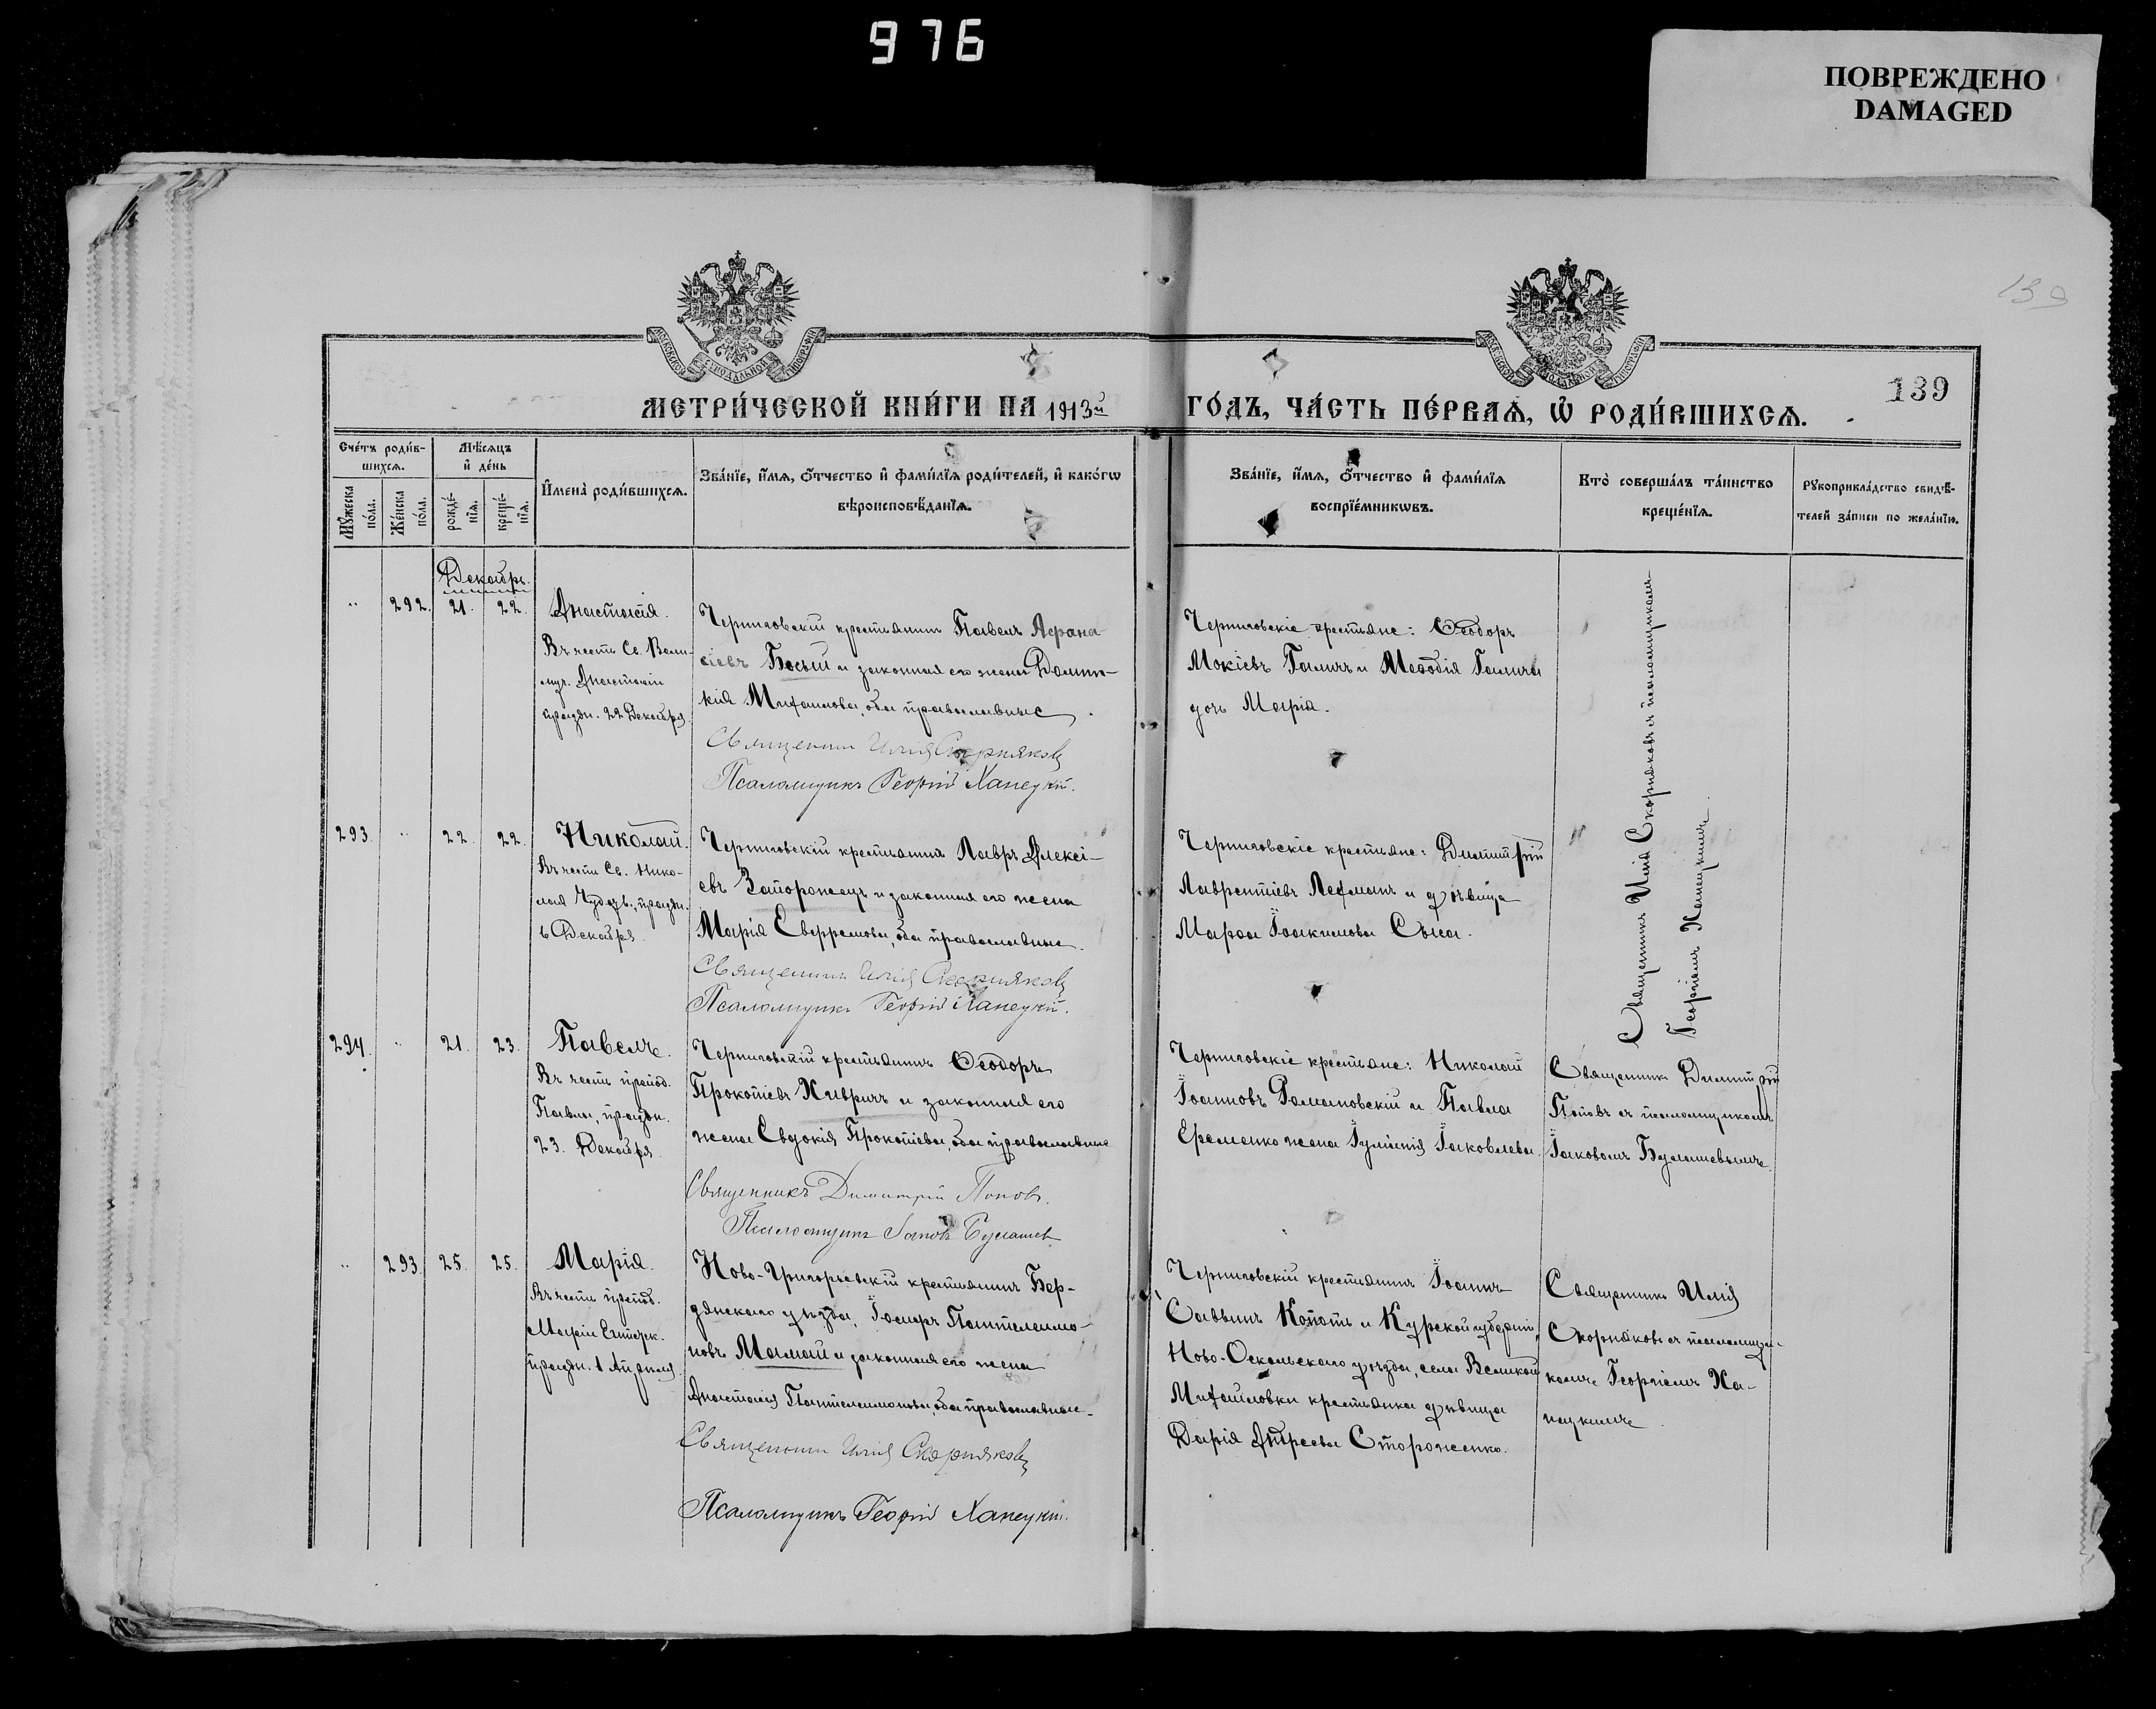 976
ПОВРЕЖДЕНО
DAMAGED
139
МОСКОВСКОЙ СѴНОДАЛЬНОЙ ТИПОГРАФІИ
МОСКОВСКОЙ СѴНОДАЛЬНОЙ ТИПОГРАФІИ
МЕТРИ́ЧЕСКОЙ КНИ́ГИ НА 1913й ГО́ДЪ, ЧА́СТЬ ПЕ́РВАѦ, Ѡ҆ РОДИ́ВШИХСѦ.
139
Сче́тъ роди́в-
шихсѧ.
Мѣ́сѧцъ
и҆ де́нь
Мꙋ́жеска
по́ла.
Же́нска
по́ла.
рожде́-
нїѧ.
креще́-
нїѧ.
И҆мена̀ роди́вшихсѧ.
Зва́нїе, и҆́мѧ, ѻ҆́тчество и҆ фами́лїѧ роди́телей, и҆ како́гѡ
вѣроисповѣ́данїѧ.
Зва́нїе, и҆́мѧ, ѻ҆́тчество и҆ фами́лїѧ
воспрїе́мникѡвъ.
Кто̀ соверша́лъ та́инство
креще́нїѧ.
Рꙋкоприкла́дство свидѣ́-
телей за́писи по жела́нїю.
Декабрь.
" 292. 21. 22.
Анастасія.
Въ честь Св. Вели-
муч. Анастасіи
праздн. 22 Декабря.
Черниговскій крестьянинъ Павелъ Афана
сіевъ Босый и законная его жена Домни-
кія Михаилова, оба православные
Священникъ Илія Скорняковъ
Псаломщикъ Георгій Ханецкій.
Черниговскіе крестьяне: Ѳеодоръ
Мокіевъ Галичъ и Меѳодія Галича
дочь Марія.
Священникъ Илія Скорняковъ съ псаломщикомъ
Георгіемъ Ханецкимъ.
293. " 22. 22.
Николай.
Въ честь Св. Нико-
лая Чудотв., праздн.
6 Декабря.
Черниговскій крестьянинъ Лавръ Алексі-
евъ Запорожецъ и законная его жена
Марія Евфремова, оба православные.
Священникъ Илія Скорняковъ
Псаломщикъ Георгій Ханецкій.
Черниговскіе крестьяне: Димитрій
Лаврентіевъ Лехманъ и дѣвица
Марѳа Іоакимова Сыса.
294. " 21. 23.
Павелъ.
Въ честь препод.
Павла, праздн.
23. Декабря.
Черниговскій крестьянинъ Ѳеодоръ
Прокопіевъ Хивричъ и законная его
жена Евдокія Прокопіева, оба православные
Священникъ Димитрій Поповъ.
Псаломщикъ Іаковъ Булашев
Черниговскіе крестьяне: Николай
Іоанновъ Романовскій и Павла
Еременко жена Іуліанія Іаковлева.
Священникъ Димитрій
Поповъ съ псаломщикомъ
Іаковомъ Булашевымъ.
" 293. 25. 25.
Марія.
Въ честь препод.
Маріи Египетск.
праздн. 1 Апрѣля.
Ново-Григорьевскій крестьянинъ Бер-
дянскаго уѣзда, Іосифъ Пантелеимо-
новъ Мамай и законная его жена
Анастасія Пантелеимонова, оба православные.
Священникъ Илія Скорняковъ
Псаломщикъ Георгій Ханецкій.
Черниговскій крестьянинъ Іоаннъ
Саввинъ Копоть и Курской губерніи,
Ново-Оскольскаго уѣзда, села Великой
Михайловки крестьянка дѣвица
Дарія Андреева Стороженко.
Священникъ Илія
Скорняковъ съ псаломщи-
комъ Георгіемъ Ха-
нецкимъ